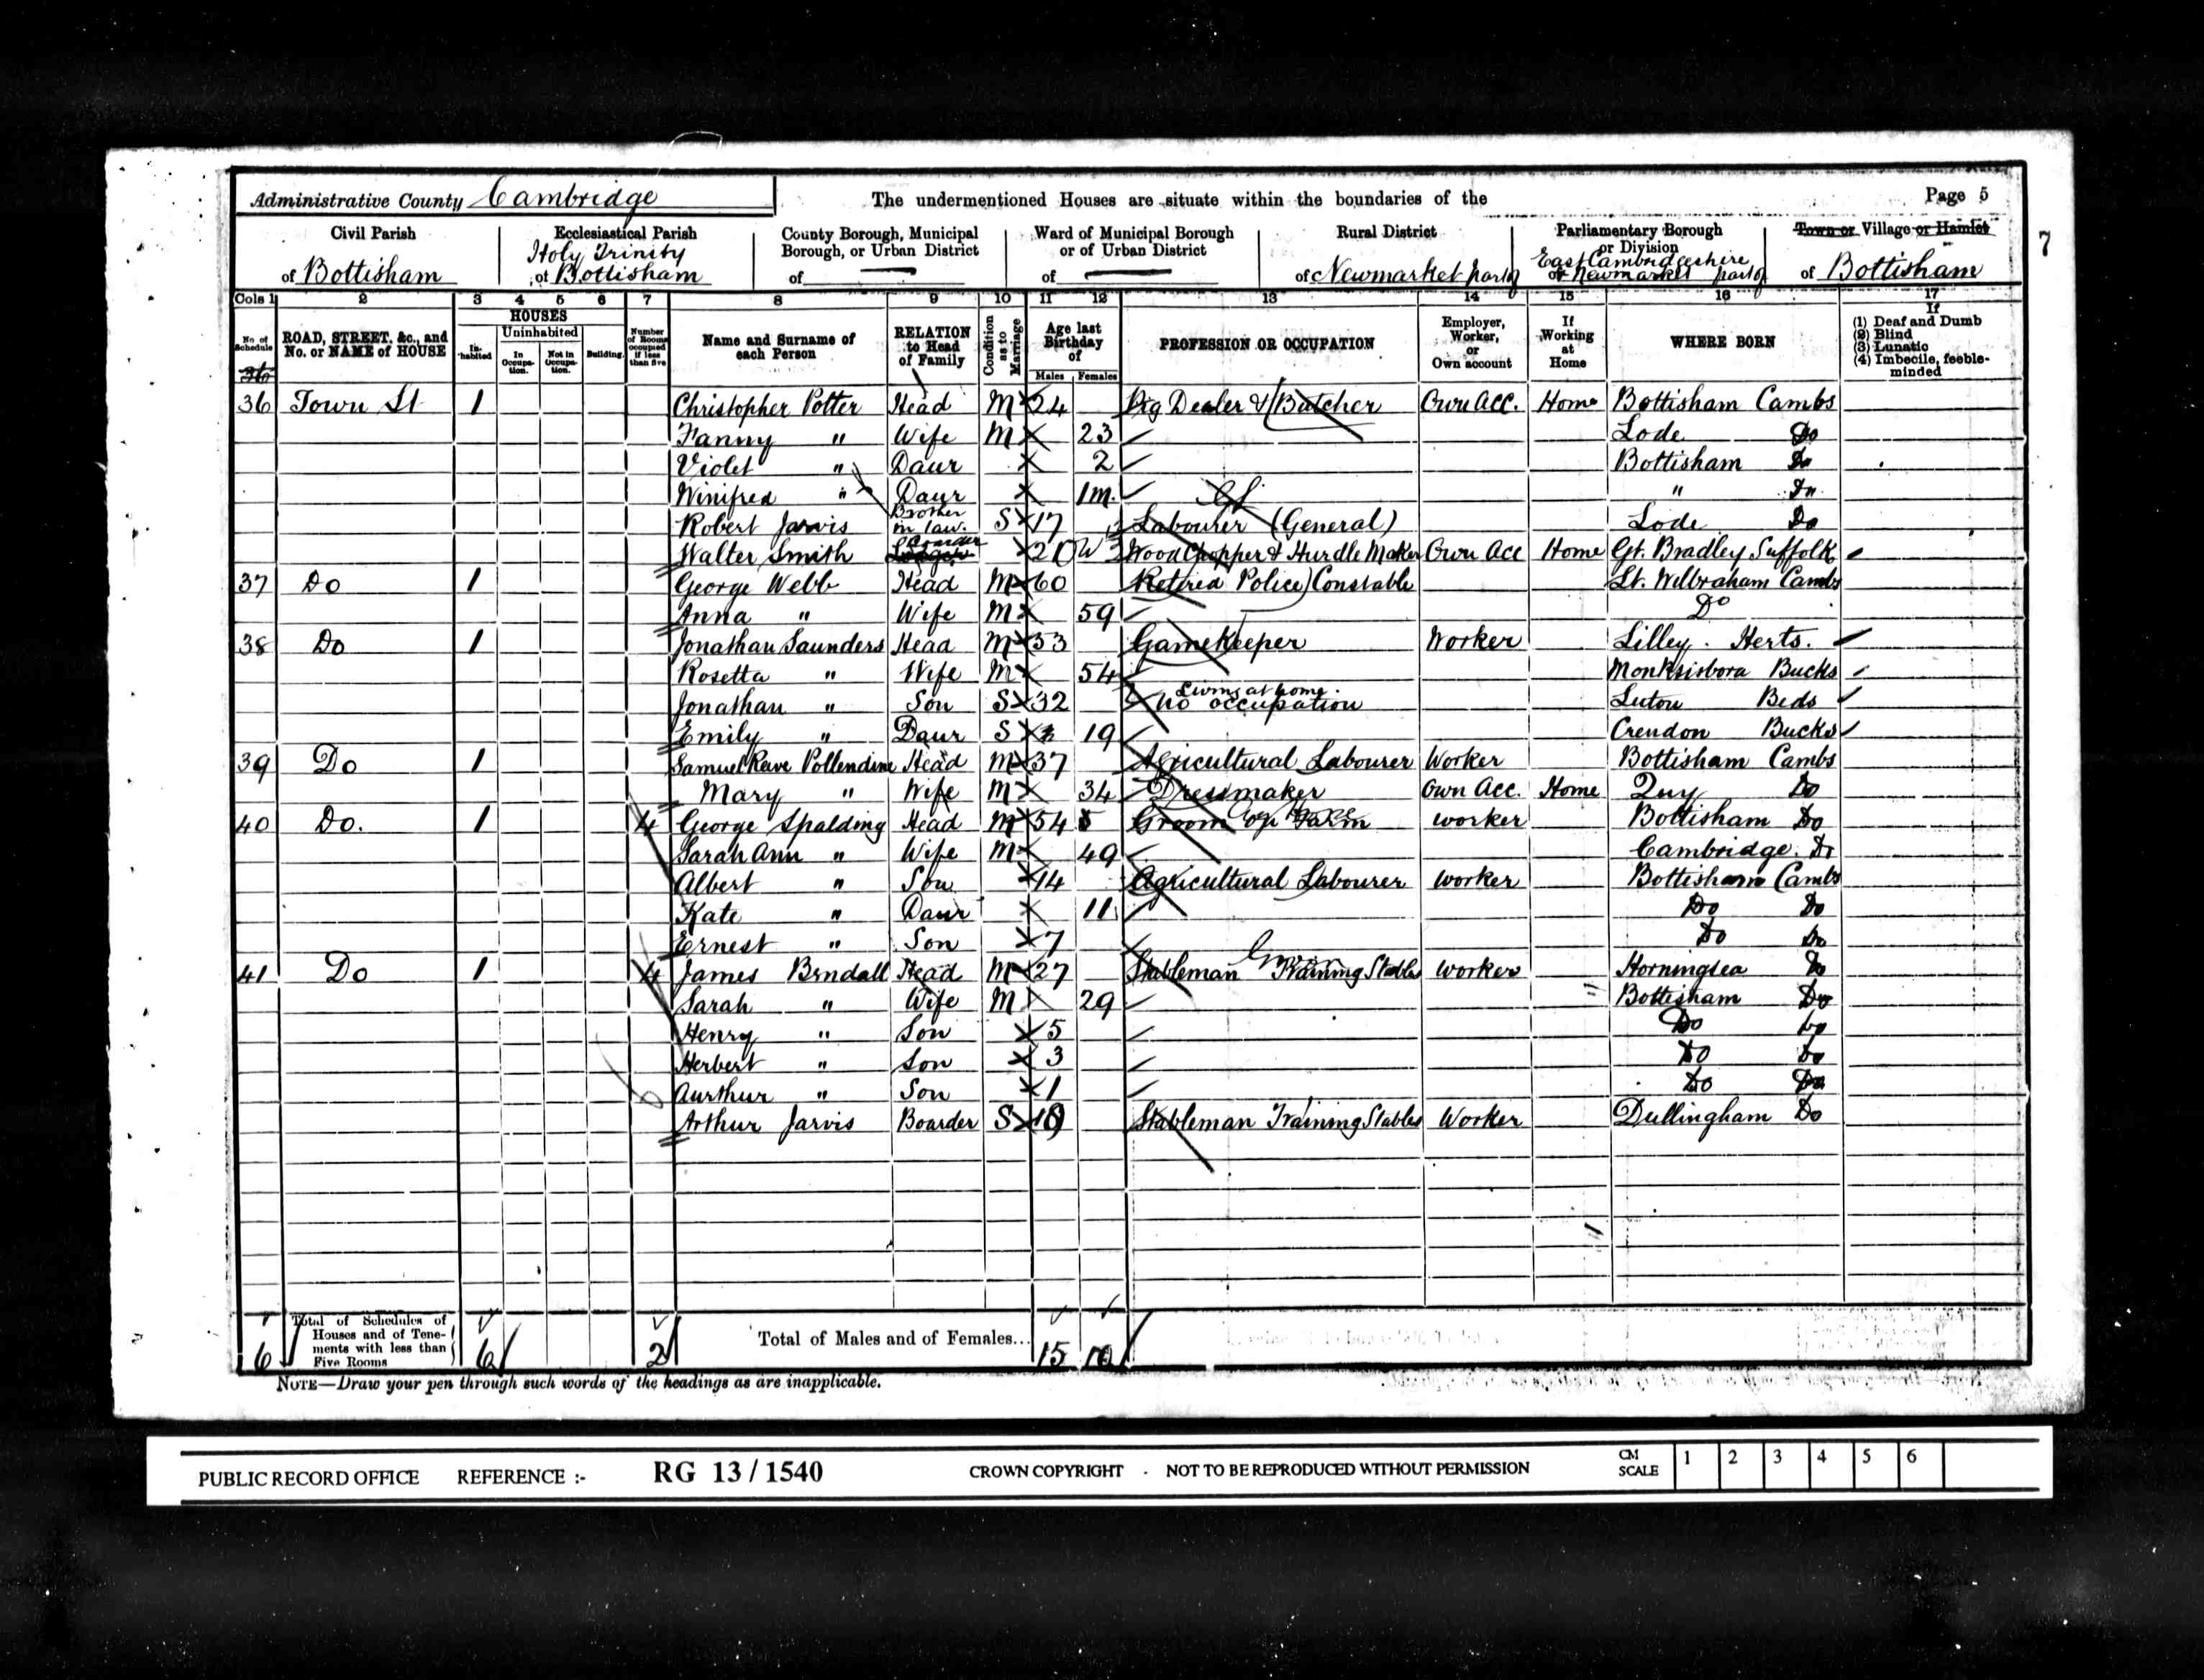 Administrative County Cambridge The undermentioned Houses are situate within the boundaries of the Page 5
7
Civil Parish of Bottisham
Ecclesiastical Parish Holy Trinity of Bottisham
County Borough, Municipal Borough, or Urban District of —
Ward of Municipal Borough or of Urban District of —
Rural District of Newmarket part of
Parliamentary Borough or Division East Cambridgeshire or Newmarket part of
Town or Village or Hamlet of Bottisham
Cols 1 2 3 4 5 6 7 8 9 10 11 12 13 14 15 16 17
No. of Schedule
ROAD, STREET, &c., and No. or NAME of HOUSE
HOUSES
In-habited
Uninhabited
In Occupa-tion.
Not in Occupa-tion.
Building.
Number of Rooms occupied if less than five
Name and Surname of each Person
RELATION to Head of Family
Condition as to Marriage
Age last Birthday of
Males Females
PROFESSION OR OCCUPATION
Employer, Worker, or Own account
If Working at Home
WHERE BORN
If
(1) Deaf and Dumb
(2) Blind
(3) Lunatic
(4) Imbecile, feeble-minded
36
36 Town St 1 Christopher Potter Head M 24 Pig Dealer & Butcher Own Acc. Home Bottisham Cambs
Fanny " Wife M 23 Lode Do
Violet " Daur 2 Bottisham Do
Winifred " Daur 1m. " Do
Robert Jarvis Brother in law. S 17 Labourer (General) Lode Do
Walter Smith Boarder 21 Wood Chopper & Hurdle Maker Own Acc Home Gt. Bradley Suffolk
37 Do 1 George Webb Head M 60 Retired Police Constable Lt. Wilbraham Cambs
Anna " Wife M 59 Do
38 Do 1 Jonathan Saunders Head M 53 Gamekeeper Worker Lilley. Herts.
Rosetta " Wife M 54 Monksisbora Bucks
Jonathan " Son S 32 Living at home. No occupation Luton Beds
Emily " Daur S 19 Crendon Bucks
39 Do 1 Samuel Reeve Pollendine Head M 37 Agricultural Labourer Worker Bottisham Cambs
Mary " Wife M 34 Dressmaker Own Acc. Home Quy Do
40 Do. 1 4 George Spalding Head M 54 Groom on Farm worker Bottisham Do
Sarah Ann " Wife M 49 Cambridge. Do
Albert " Son 14 Agricultural Labourer worker Bottisham Cambs
Kate " Daur 11 Do Do
Ernest " Son 7 Do Do
41 Do 1 4 James Brndall Head M 27 Stableman Training Stables worker Horningsea Do
Sarah " Wife M 29 Bottisham Do
Henry " Son 5 Do Do
Herbert " Son 3 Do Do
Aurthur " Son 1 Do Do
Arthur Jarvis Boarder S Stableman Training Stables Worker Dullingham Do
6 Total of Schedules of Houses and of Tene-ments with less than Five Rooms 6 2 Total of Males and of Females... 15 10
NOTE—Draw your pen through such words of the headings as are inapplicable.
PUBLIC RECORD OFFICE REFERENCE :- RG 13 / 1540 CROWN COPYRIGHT - NOT TO BE REPRODUCED WITHOUT PERMISSION CM SCALE 1 2 3 4 5 6